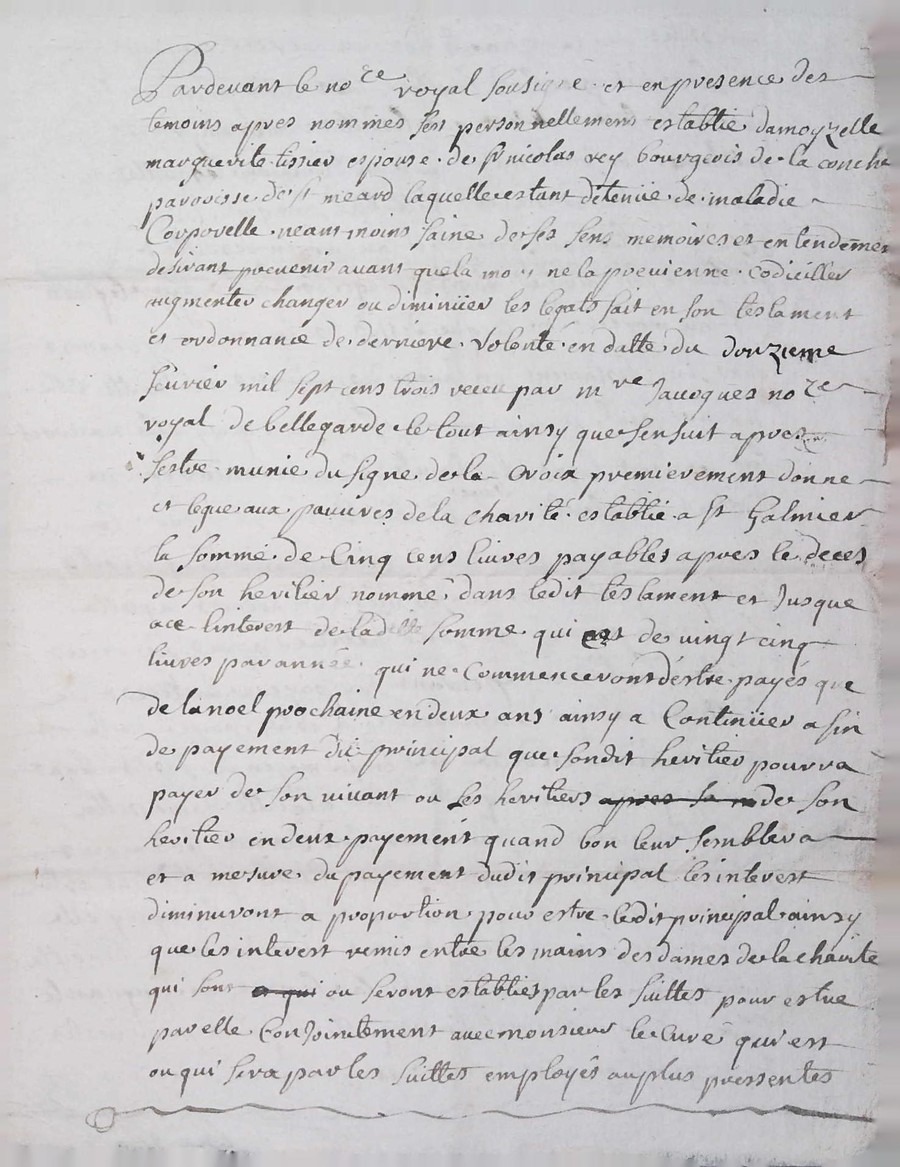 Pardevant le no.re royal sousigné et en presence des
temoins apres nommés sest personnellement establie damoyzelle
marguerite tissier espouse de sr nicolas rey bourgeois de la conche
parroisse de st meard laquelle estant detenüe de maladie
Corporelle neantmoins saine de ses sens memoires et entendemet
desirant prevenir avant que la mort ne la previenne codiciller
augmenter changer ou diminüer les legats fait en son testament
et ordonnance de derniere volonté en datte du douzieme
feuvrier mil sept cens trois receu par mre Jacques no.re
royal de bellegarde le tout ainsy que sensuit apres
sestre munie du signe de la Croix premierement donne
et legue aux pauvres de la charité establie a st Galmier
la somme de Cinq cens livres payables apres le deces
de son heritier nommé dans ledit testament et Jusque
a ce linterest de ladite somme qui est de vingt cinq
livres par année qui ne Commenceront destre payés que
de la noel prochaine en deux ans ainsy a Continüer a fin
de payement du principal que sondit heritier pourra
payer de son vivant ou les heritiers apres sa m de son
heritier en deux payement quand bon leur semblera
et a mesure du payement dudit principal les interest
diminuront a proportion pour estre ledit principal ainsy
que les interest remis entre les mains des dames de la charité
qui sont a qui ou seront establies par les suittes pour estre
par elle Conjointement avec monsieur le Curé qui est
ou qui sera par les suittes employés au plus pressentes